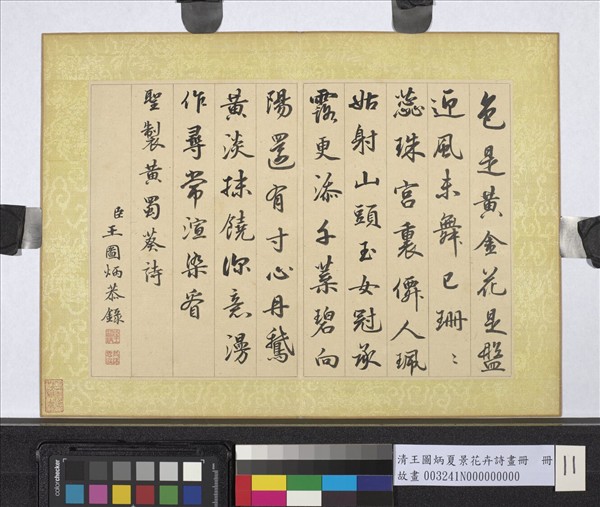 色是黃金花是盤
迎風未舞已珊〻
蕊珠宮裏僊人珮
姑射山頭玉女冠承
露更添千葉碧向
陽還有寸心丹鵞
黃淡抹饒深意漫
作尋常渲染看
聖製黃蜀葵詩
臣王圖炳恭錄
colorchecker
清王圖炳夏景花卉詩畫冊 冊
故畫 003241N000000000
11